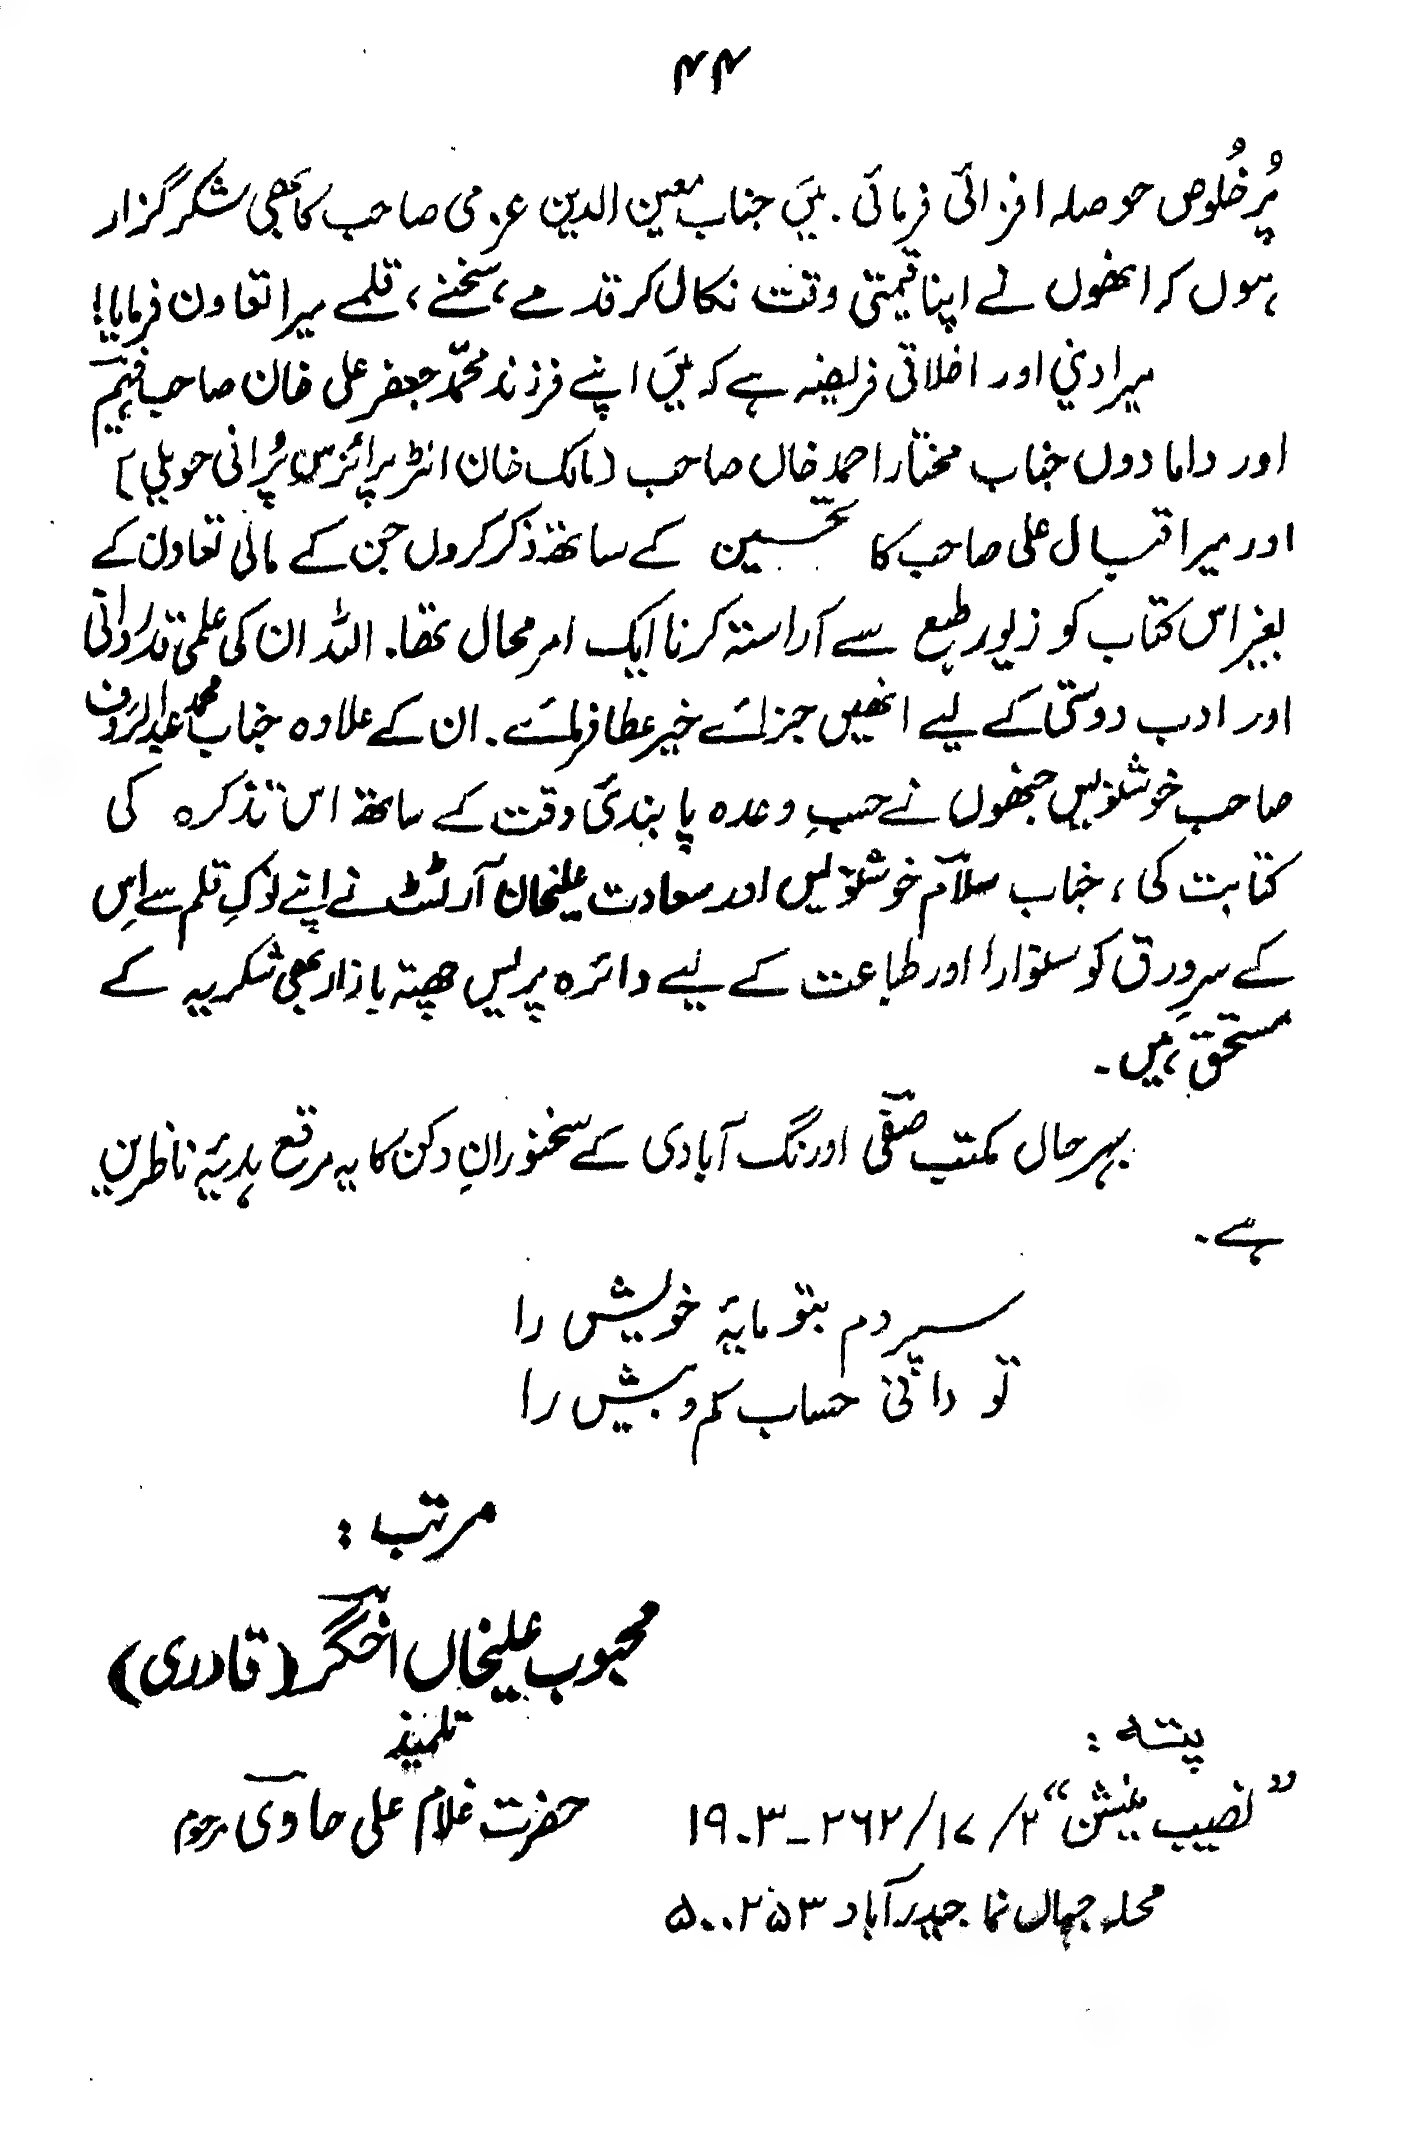 ۴۴
پُر خُلوص حوصلہ افزائی فرمائی۔ میَں جناب معین الدین عزمی صاحب کا بھی شکر گزار
ہوں کہ انھوں نے اپنا قیمتی وقت نکال کر قدمے، سخنے، قلمے میرا تعاون فرمایا!
میرا دینی اور اخلاقی فریضہ ہے کہ میَں اپنے فرزند محمّد جعفر علی خان صاحب فہیم
اور دامادوں جناب مختار احمد خاں صاحب (مالک خان انٹرپرائزس پُرانی حویلی)
اور میر اقبال علی صاحب کا تحسین کے ساتھ ذکر کروں جن کے مالی تعاون کے
بغیر اس کتاب کو زیور طبع سے آراستہ کرنا ایک امر محال تھا۔ اللہ ان کی علمی قدردانی
اور ادب دوستی کے لیے انھیں جزائے خیر عطا فرمائے۔ ان کے علاوہ جناب محمد عبدالرؤف
صاحب خوشنویس جنھوں نے حسبِ وعدہ پابندیٔ وقت کے ساتھ اس تذکرہ کی
کتابت کی، جناب سلام خوشنویس اور سعادت علیخان آرٹسٹ نے اپنے نوکِ قلم سے اِس
کے سرِورق کو سنوارا اور طباعت کے لیے دائرہ پریس چھتہ بازار بھی شکریہ کے
مستحق ہیں۔
بہرحال مکتبِ صفی اورنگ آبادی کے سخنورانِ دکن کا یہ مرقع ہدیۂ ناظرین
ہے۔
سپردم بتو مایۂ خویش را
تو دانی حساب کم و بیش را
مرتب :
محبوب علیخاں اخگر (قادری)
تلمیذ
حضرت غلام علی حاوی مرحوم
پتہ :
”نصیب مینشن“ ۲/ ۱۷/ ۲۶۲ – ۳-۱۹
محلہ جہاں نما حیدرآباد ۵۰۰۲۵۳